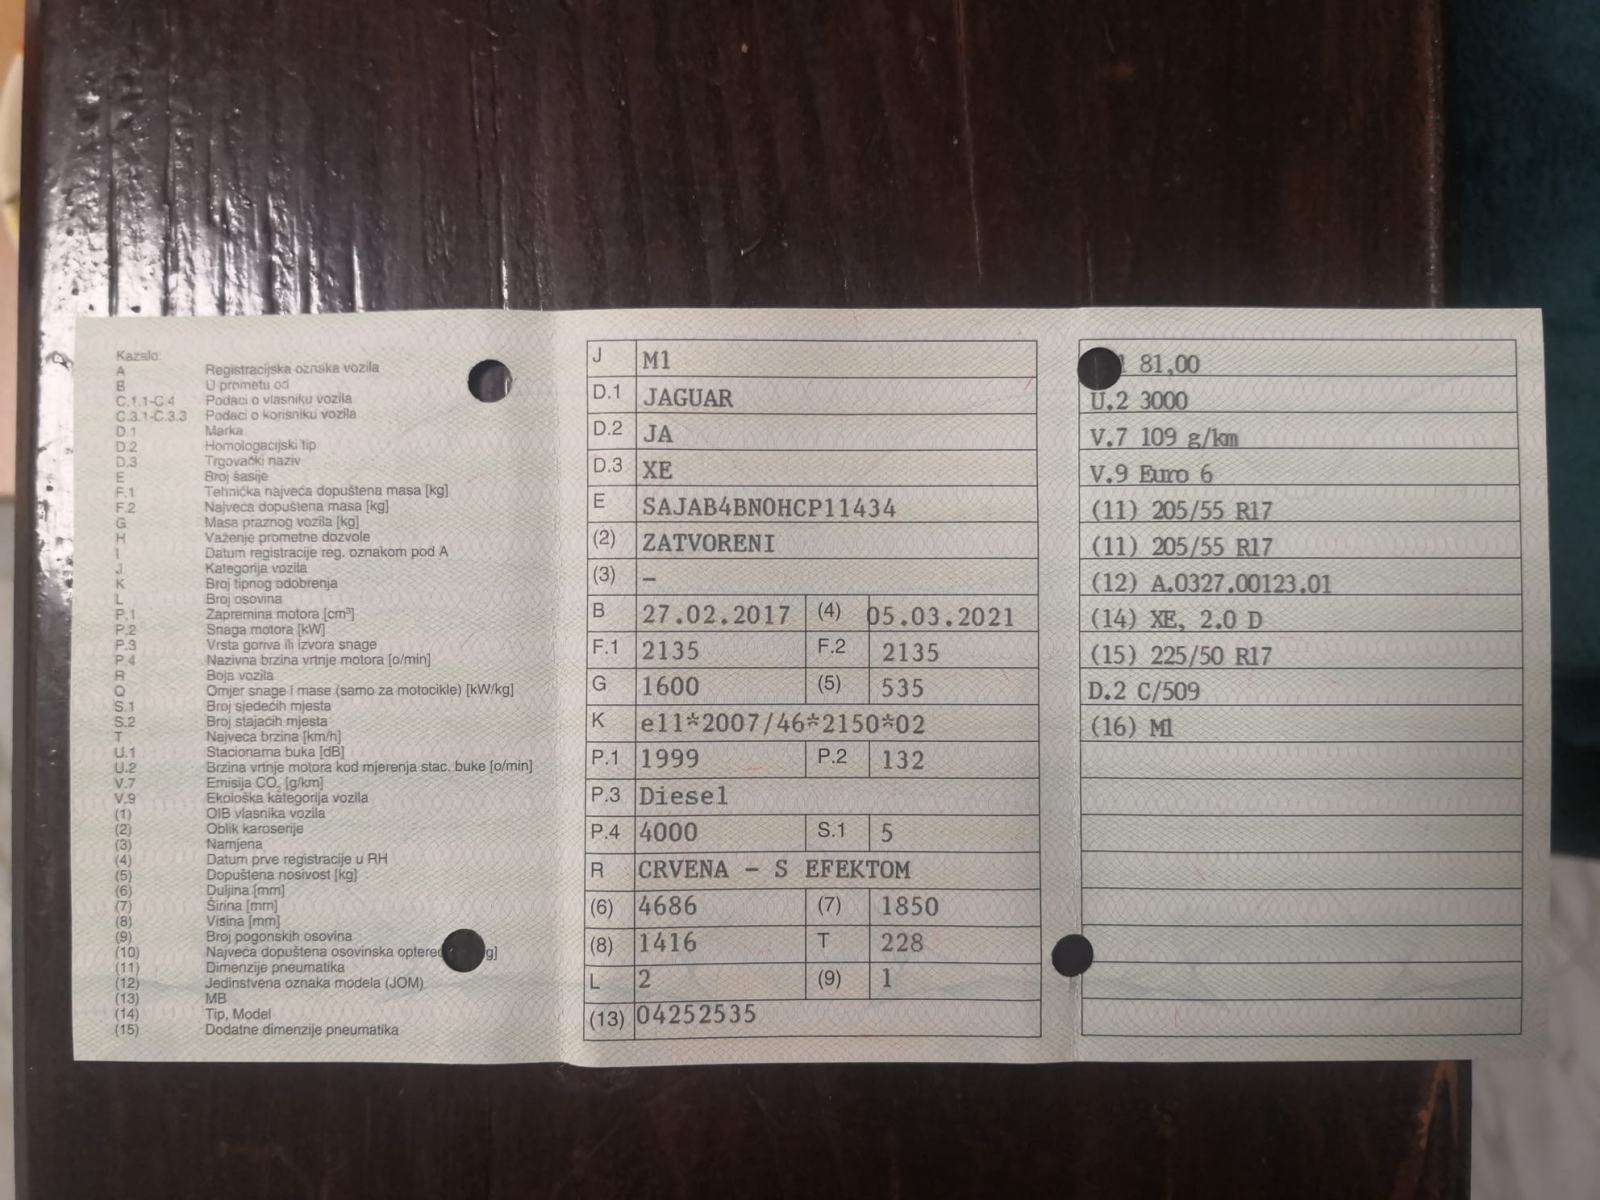 Kazalo:
A Registracijska oznaka vozila
B U prometu od
C.1.1-C.4 Podaci o vlasniku vozila
C.3.1-C.3.3 Podaci o korisniku vozila
D.1 Marka
D.2 Homologacijski tip
D.3 Trgovački naziv
E Broj šasije
F.1 Tehnička najveća dopuštena masa [kg]
F.2 Najveća dopuštena masa [kg]
G Masa praznog vozila [kg]
H Važenje prometne dozvole
I Datum registracije reg. oznakom pod A
J Kategorija vozila
K Broj tipnog odobrenja
L Broj osovina
P.1 Zapremina motora [cm³]
P.2 Snaga motora [kW]
P.3 Vrsta goriva ili izvora snage
P.4 Nazivna brzina vrtnje motora [o/min]
R Boja vozila
Q Omjer snage i mase (samo za motocikle) [kW/kg]
S.1 Broj sjedećih mjesta
S.2 Broj stajaćih mjesta
T Najveća brzina [km/h]
U.1 Stacionarna buka [dB]
U.2 Brzina vrtnje motora kod mjerenja stac. buke [o/min]
V.7 Emisija CO₂ [g/km]
V.9 Ekološka kategorija vozila
(1) OIB vlasnika vozila
(2) Oblik karoserije
(3) Namjena
(4) Datum prve registracije u RH
(5) Dopuštena nosivost [kg]
(6) Duljina [mm]
(7) Širina [mm]
(8) Visina [mm]
(9) Broj pogonskih osovina
(10) Najveća dopuštena osovinska g]
(11) Dimenzije pneumatika
(12) Jedinstvena oznaka modela (JOM)
(13) MB
(14) Tip, Model
(15) Dodatne dimenzije pneumatika
J M1
D.1 JAGUAR
D.2 JA
D.3 XE
E SAJAB4BN0HCP11434
(2) ZATVORENI
(3) –
B 27.02.2017 (4) 05.03.2021
F.1 2135 F.2 2135
G 1600 (5) 535
K e11*2007/46*2150*02
P.1 1999 P.2 132
P.3 Diesel
P.4 4000 S.1 5
R CRVENA – S EFEKTOM
(6) 4686 (7) 1850
(8) 1416 T 228
L 2 (9) 1
(13) 04252535
81,00
U.2 3000
V.7 109 g/km
V.9 Euro 6
(11) 205/55 R17
(11) 205/55 R17
(12) A.0327.00123.01
(14) XE, 2.0 D
(15) 225/50 R17
D.2 C/509
(16) M1